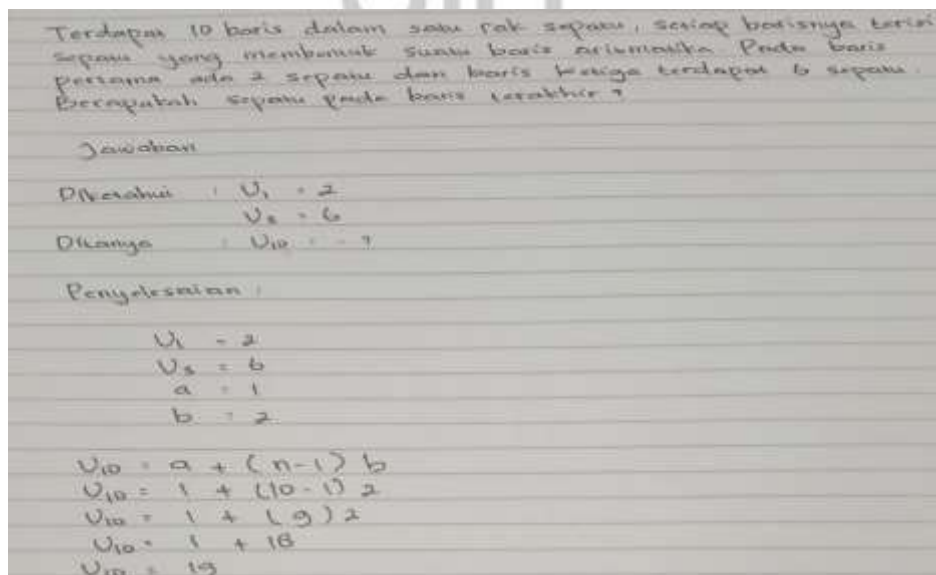 Terdapat 10 baris dalam satu rak sepatu, setiap barisnya berisi
sepatu yang membentuk suatu baris aritmatika. Pada baris
pertama ada 2 sepatu dan baris ketiga terdapat 6 sepatu.
Berapakah sepatu pada baris terakhir ?
Jawaban
Diketahui : U₁ = 2
U₃ = 6
Ditanya : U₁₀ = - ?
Penyelesaian :
U₁ = 2
U₃ = 6
a = 1
b = 2
U₁₀ = a + (n-1) b
U₁₀ = 1 + (10-1) 2
U₁₀ = 1 + (9) 2
U₁₀ = 1 + 18
U₁₀ = 19